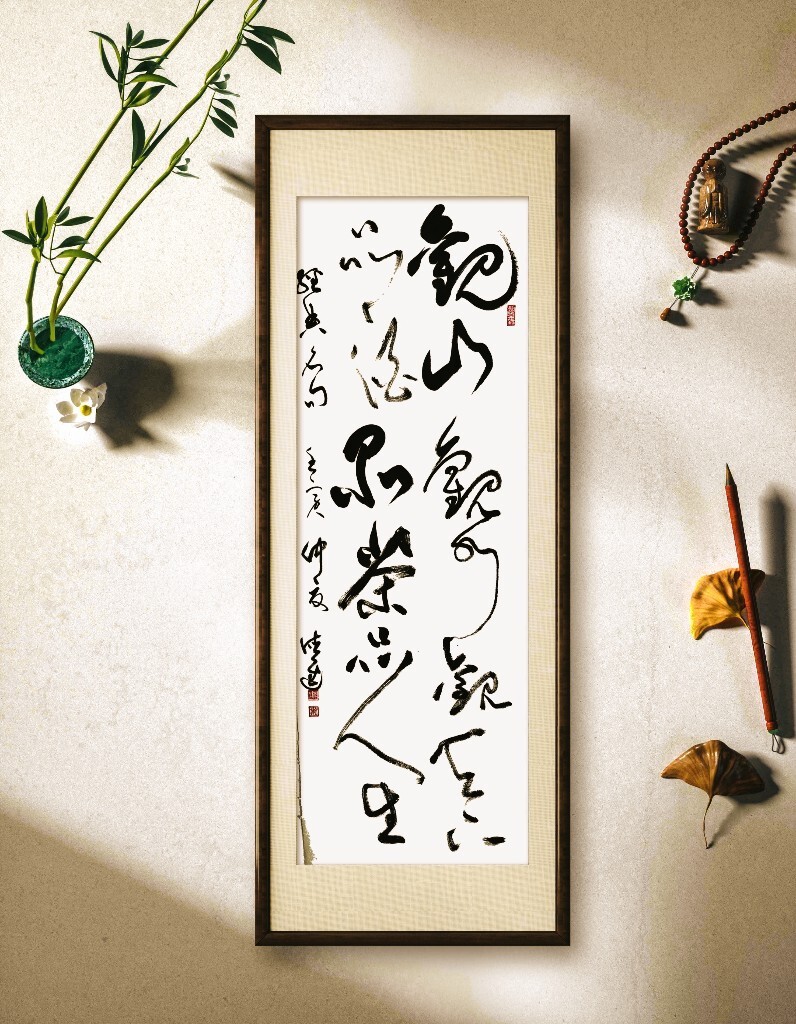 觀山觀水觀天下
品酒品茶品人生
經典名句 壬寅仲夏